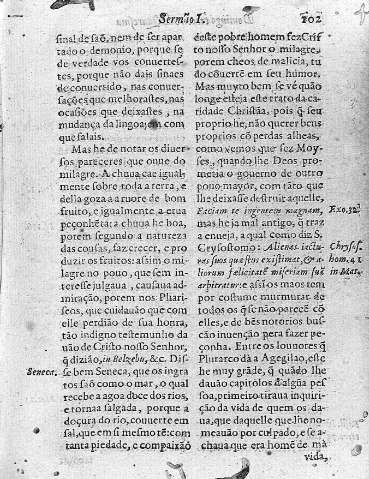 Sermão I.
102
sinal de saõ, nem de ser apar-
tado o demonio, porque se
de verdade vos conuertes-
tes, porque não dais sinaes
de conuertido, nas conuer-
sações que melhorastes, nas
ocasiões que deixastes, na
mudança da lingoagem com
que falais.
Mas he de notar os diuer-
sos pareceres que ouue do
milagre. A chuua cae igual-
mente sobre toda a terra, e
della goza a aruore de bom
fruito, e igualmente a erua
peçonhēta: a chuua he hoa,
porem segundo a natureza
das cousas, faz crecer, e pro
duzir os fruitos: assim o mi-
lagre no pouo, que sem in-
teresse julgaua, causaua ad-
miração, porem nos Phari-
seos, que cuidauão que com
elle perdião de sua honra,
tão indigno testemunho da
uão de Cristo nosso Senhor,
q̃ dizião, in Belzebu, &c. Dis-
Seneca.
se bem Seneca, que os ingra
tos saõ como o mar, o qual
recebe a agoa doce dos rios,
e torna salgada, porque a
doçura do rio, conuerte em
sal, que em si mesmo tē: com
tanta piedade, e compaixão
deste pobre homem fez Crist
to nosso Senhor o milagre,
porem cheos de malicia, tu
do cōuertē em seu humor.
Mas muyto bem se vê quão
longe esteja este trato da ca
ridade Christãa, pois q̃ seu
proprio he, não querer bens
proprios cõ perdas alheas,
como vemos que sez Moy-
ses, quando lhe Deos pro-
metia o gouerno de outro
pouo mayor, com tãto que
lhe deixasse destruir aquelle,
Faciam te in gentem magnam,
Exo.32.
mas he ja mal antigo, q̃ traz
a enueja, a qual como diz S.
Crysostomo: Alienas iectu-
Chrysos.
ras suos quæstus existimat, & a-
hom.41
liorum fælicitatē miseriam suã
in Mat.
arbitratur: e assi os maos tem
por costume murmurar de
todos os q̃ se não parecē cō
elles, e de bēs notorios bus-
cão inuenção pera fazer pe-
çonha. Entre os louuores q̃
Plutarco dâ a Agesilao, este
he muy grãde, q̃ quãdo lhe
dauão capitolos dalgũa pes
soa, primeiro tiraua inquiri-
ção da vida de quem os da-
ua, que daquelle que lhe no-
meauão por culpado, e se a-
chaua que era homē de mà
vida,